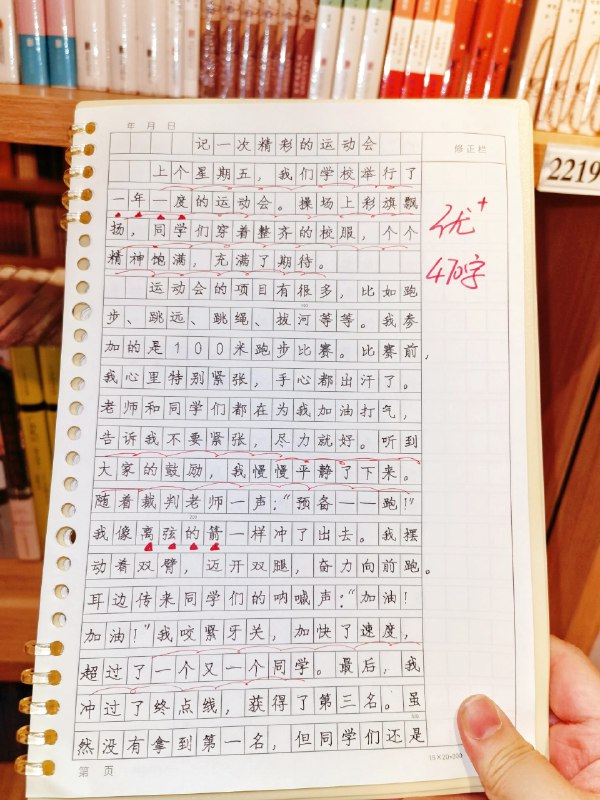 年 月 日
记一次精彩的运动会
修正栏
上个星期五，我们学校举行了
一年一度的运动会。操场上彩旗飘
扬，同学们穿着整齐的校服，个个
精神饱满，充满了期待。
运动会的项目有很多，比如跑
步、跳远、跳绳、拔河等等。我参
加的是100米跑步比赛。比赛前，
我心里特别紧张，手心都出汗了。
老师和同学们都在为我加油打气，
告诉我不要紧张，尽力就好。听到
大家的鼓励，我慢慢平静了下来。
随着裁判老师一声：“预备——跑！”
我像离弦的箭一样冲了出去。我摆
动着双臂，迈开双腿，奋力向前跑。
耳边传来同学们的呐喊声：“加油！
加油！”我咬紧牙关，加快了速度，
超过了一个又一个同学。最后，我
冲过了终点线，获得了第三名。虽
然没有拿到第一名，但同学们还是
第 页
优+
470字
2219